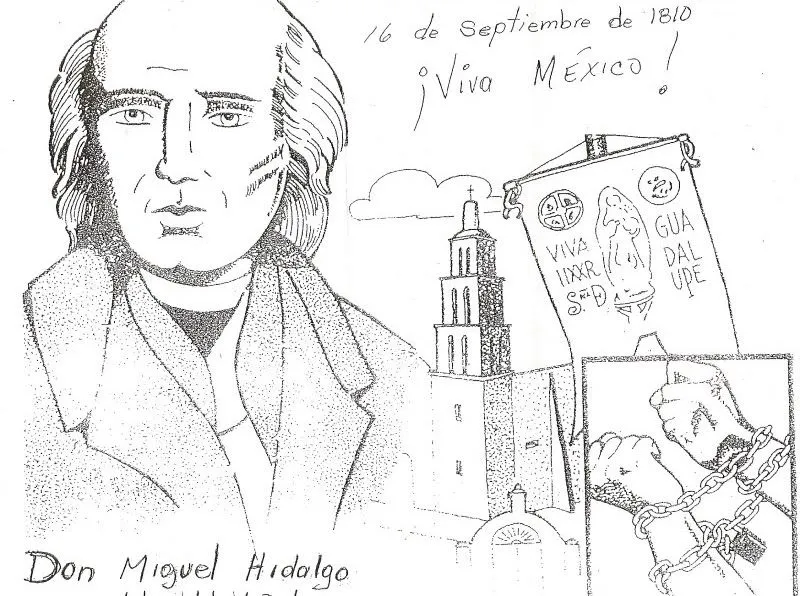 16 de Septiembre de 1810
¡Viva MÉXICO!
VIVA
GUA
DAL
UPE
Don Miguel Hidalgo